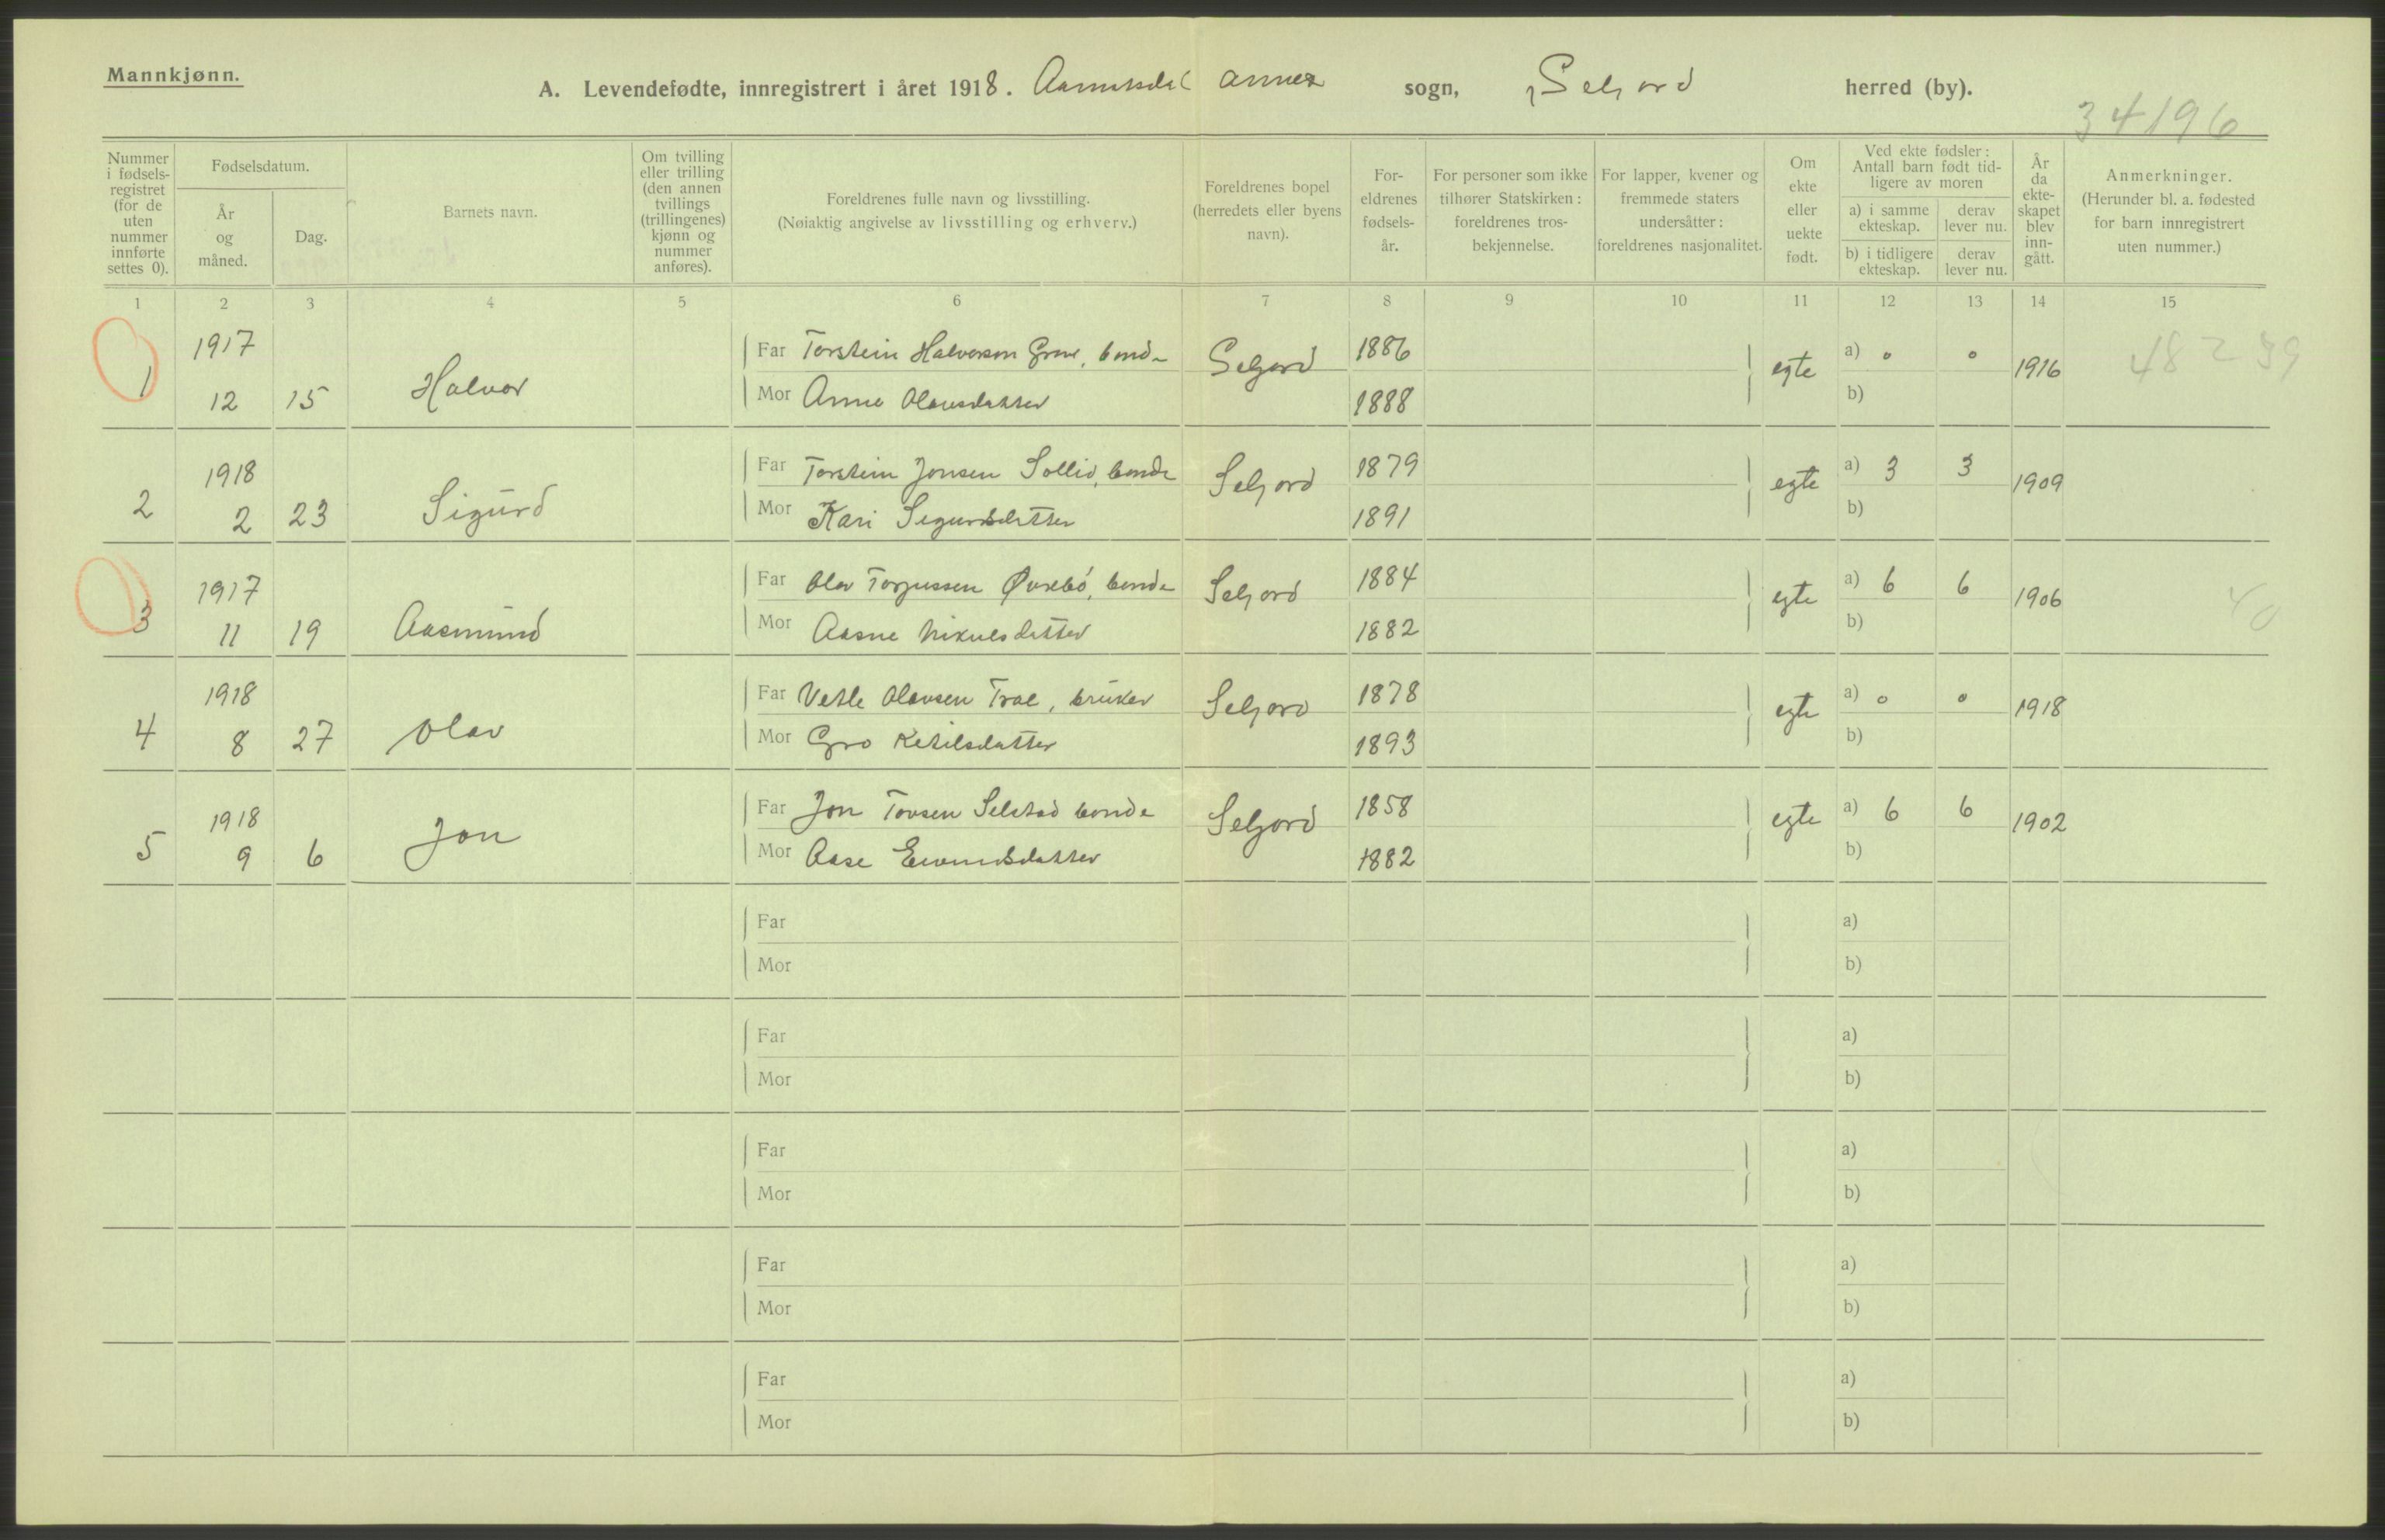 Mannkjønn.
A. Levendefødte, innregistrert i året 1918. annex sogn, Seljord herred (by).
34196
Nummer i fødselsregistret (for de uten nummer innførte settes 0).
Fødselsdatum.
År og måned.
Dag.
Barnets navn.
Om tvilling eller trilling (den annen tvillings (trillingenes) kjønn og nummer anføres).
Foreldrenes fulle navn og livsstilling.
(Nøiaktig angivelse av livsstilling og erhverv.)
Foreldrenes bopel (herredets eller byens navn).
Foreldrenes fødselsår.
For personer som ikke tilhører Statskirken: foreldrenes trosbekjennelse.
For lapper, kvener og fremmede staters undersåtter: foreldrenes nasjonalitet.
Om ekte eller uekte født.
Ved ekte fødsler: Antall barn født tidligere av moren
a) i samme ekteskap.
derav lever nu.
b) i tidligere ekteskap.
derav lever nu.
År da ekteskapet blev inngått.
Anmerkninger.
(Herunder bl. a. fødested for barn innregistrert uten nummer.)
1 2 3 4 5 6 7 8 9 10 11 12 13 14 15
1 1917 12 15 Halvor
Far Torstein Halvorsen Grave, bonde Seljord 1886 egte a) 0 0 1916 48 2 39
Mor Anne Olavsdatter 1888 b)
2 1918 2 23 Sigurd
Far Torstein Jonsen Sollid, bonde Seljord 1879 egte a) 3 3 1909
Mor Kari Sigurdsdatter 1891 b)
3 1917 11 19 Aasmund
Far Olav Torjussen Øvrebö, bonde Seljord 1884 egte a) 6 6 1906 40
Mor Aasne Nikulsdatter 1882 b)
4 1918 8 27 Olav
Far Vetle Olavsen Trae, bruker Seljord 1878 egte a) 0 0 1918
Mor Gro Ketilsdatter 1893 b)
5 1918 9 6 Jon
Far Jon Tovsen Selstad bonde Seljord 1858 egte a) 6 6 1902
Mor Aase Eivindsdatter 1882 b)
Far a)
Mor b)
Far a)
Mor b)
Far a)
Mor b)
Far a)
Mor b)
Far a)
Mor b)